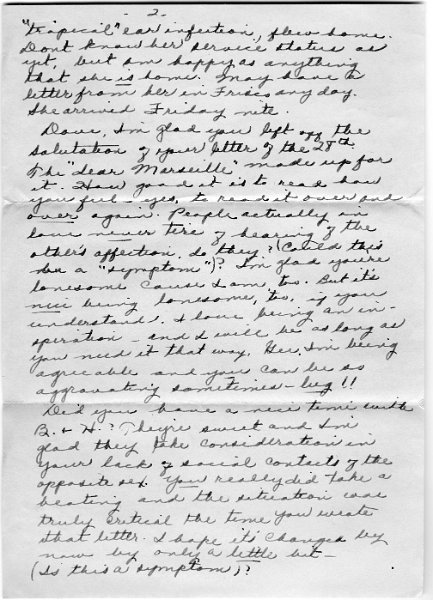 - 2 -
"tropical" ear infection, flew home.
Dont know her service status as
yet, but am happy as anything
that she is home. May have a
letter from her in Frisco any day.
She arrived Friday nite.
Dave, I'm glad you left off the
salutation of your letter of the 28th.
The "dear Marseille" made up for
it. How good it is to read how
you feel - yes, to read it over and
over again. People actually in
love never tire of hearing of the
other's affection, do they? (Could this
be a "symptom")? I'm glad you're
lonesome cause I am, too. But it's
nice being lonesome, too, if you
understand. I love being an in-
spiration - and I will be as long as
you need it that way. Gee, I'm being
agreeable and you can be so
aggravating sometimes - bug!!
Did you have a nice time with
B. & H.? They're sweet and I'm
glad they take consideration in
your lack of social contacts of the
opposite sex. You really did take a
beating and the situation was
truly critical the time you wrote
that letter. I hope it's changed by
now by only a little bit -
(Is this a symptom)?